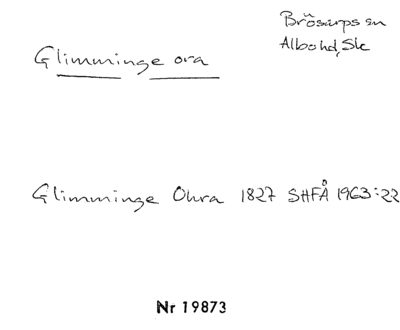 Brösarps sn
Albo hd, Sk
Glimminge ora
Glimminge Ohra 1827 SHFÅ 1963:22
Nr 19873